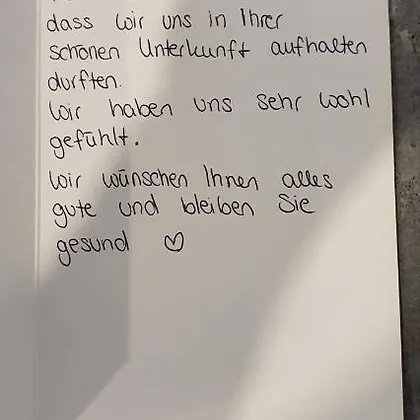 dass wir uns in Ihrer
schönen Unterkunft aufhalten
durften.
Wir haben uns sehr wohl
gefühlt.
Wir wünschen Ihnen alles
gute und bleiben Sie
gesund ♡